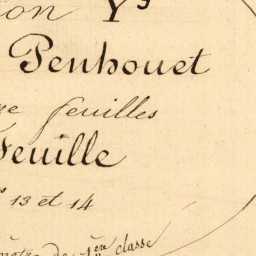 ion Y
Penhouet
ne feuilles
Feuille
s 13 et 14
mètre de 1ère classe